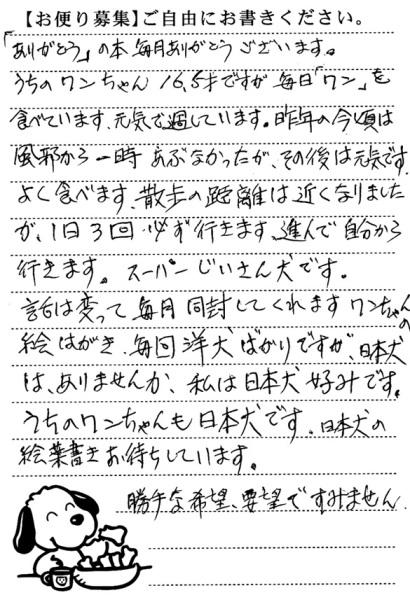 【お便り募集】ご自由にお書きください。
「ありがとう」の本毎月ありがとうございます。
うちのワンちゃん16,5才ですが毎日「ワン」を
食べています、元気で過しています。昨年の今頃は
風邪から一時あぶなかったが、その後は元気です、
よく食べます、散歩の距離は近くなりました
が、1日3回必ず行きます、進んで自分から
行きます。スーパーじいさん犬です。
話は変って毎月同封してくれますワンちゃんの
絵はがき、毎回洋犬ばかりですが、日本犬
は、ありませんか、私は日本犬好みです。
うちのワンちゃんも日本犬です、日本犬の
絵葉書きお待ちしています。
勝手な希望、要望ですみません